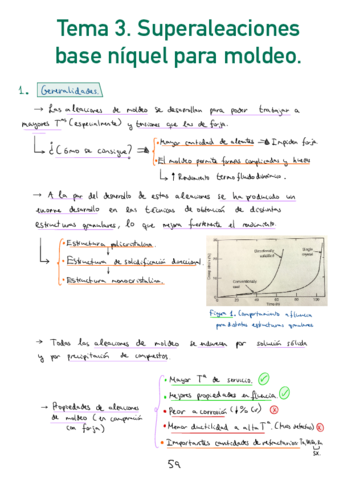 Tema 3. Superaleaciones
base níquel para moldeo.
1. Generalidades.
→ Las aleaciones de moldeo se desarrollan para poder trabajar a
mayores Tas (especialmente) y tensiones que las de forja.
↳ ¿Cómo se consigue? ⇒
• Mayor cantidad de aleantes ⇒ Impiden forja
• El moldeo permite formas complicadas y huecos
↳ ↑ Rendimiento termofluidodinámico.
→ A la par del desarrollo de estas aleaciones se ha producido un
enorme desarrollo en las técnicas de obtención de distintas
estructuras granulares, lo que mejora fuertemente el rendimiento.
• Estructura policristalina
• Estructura de solidificación direccional.
• Estructura monocristalina.
Directionally
solidified
Single
crystal
Conventionally
cast
20 40 60 80 100
Figura 1. Comportamiento a fluencia
para distintas estructuras granulares
→ Todas las aleaciones de moldeo se endurecen por solución sólida
y por precipitación de compuestos.
→ Propiedades de aleaciones
de moldeo (en comparación
con forja)
• Mayor Ta de servicio.
• Mejores propiedades en fluencia.
• Peor a corrosión (↓% Cr)
• Menor ductilidad a alta Ta.
• Importantes cantidades de refractarios
SX.
59